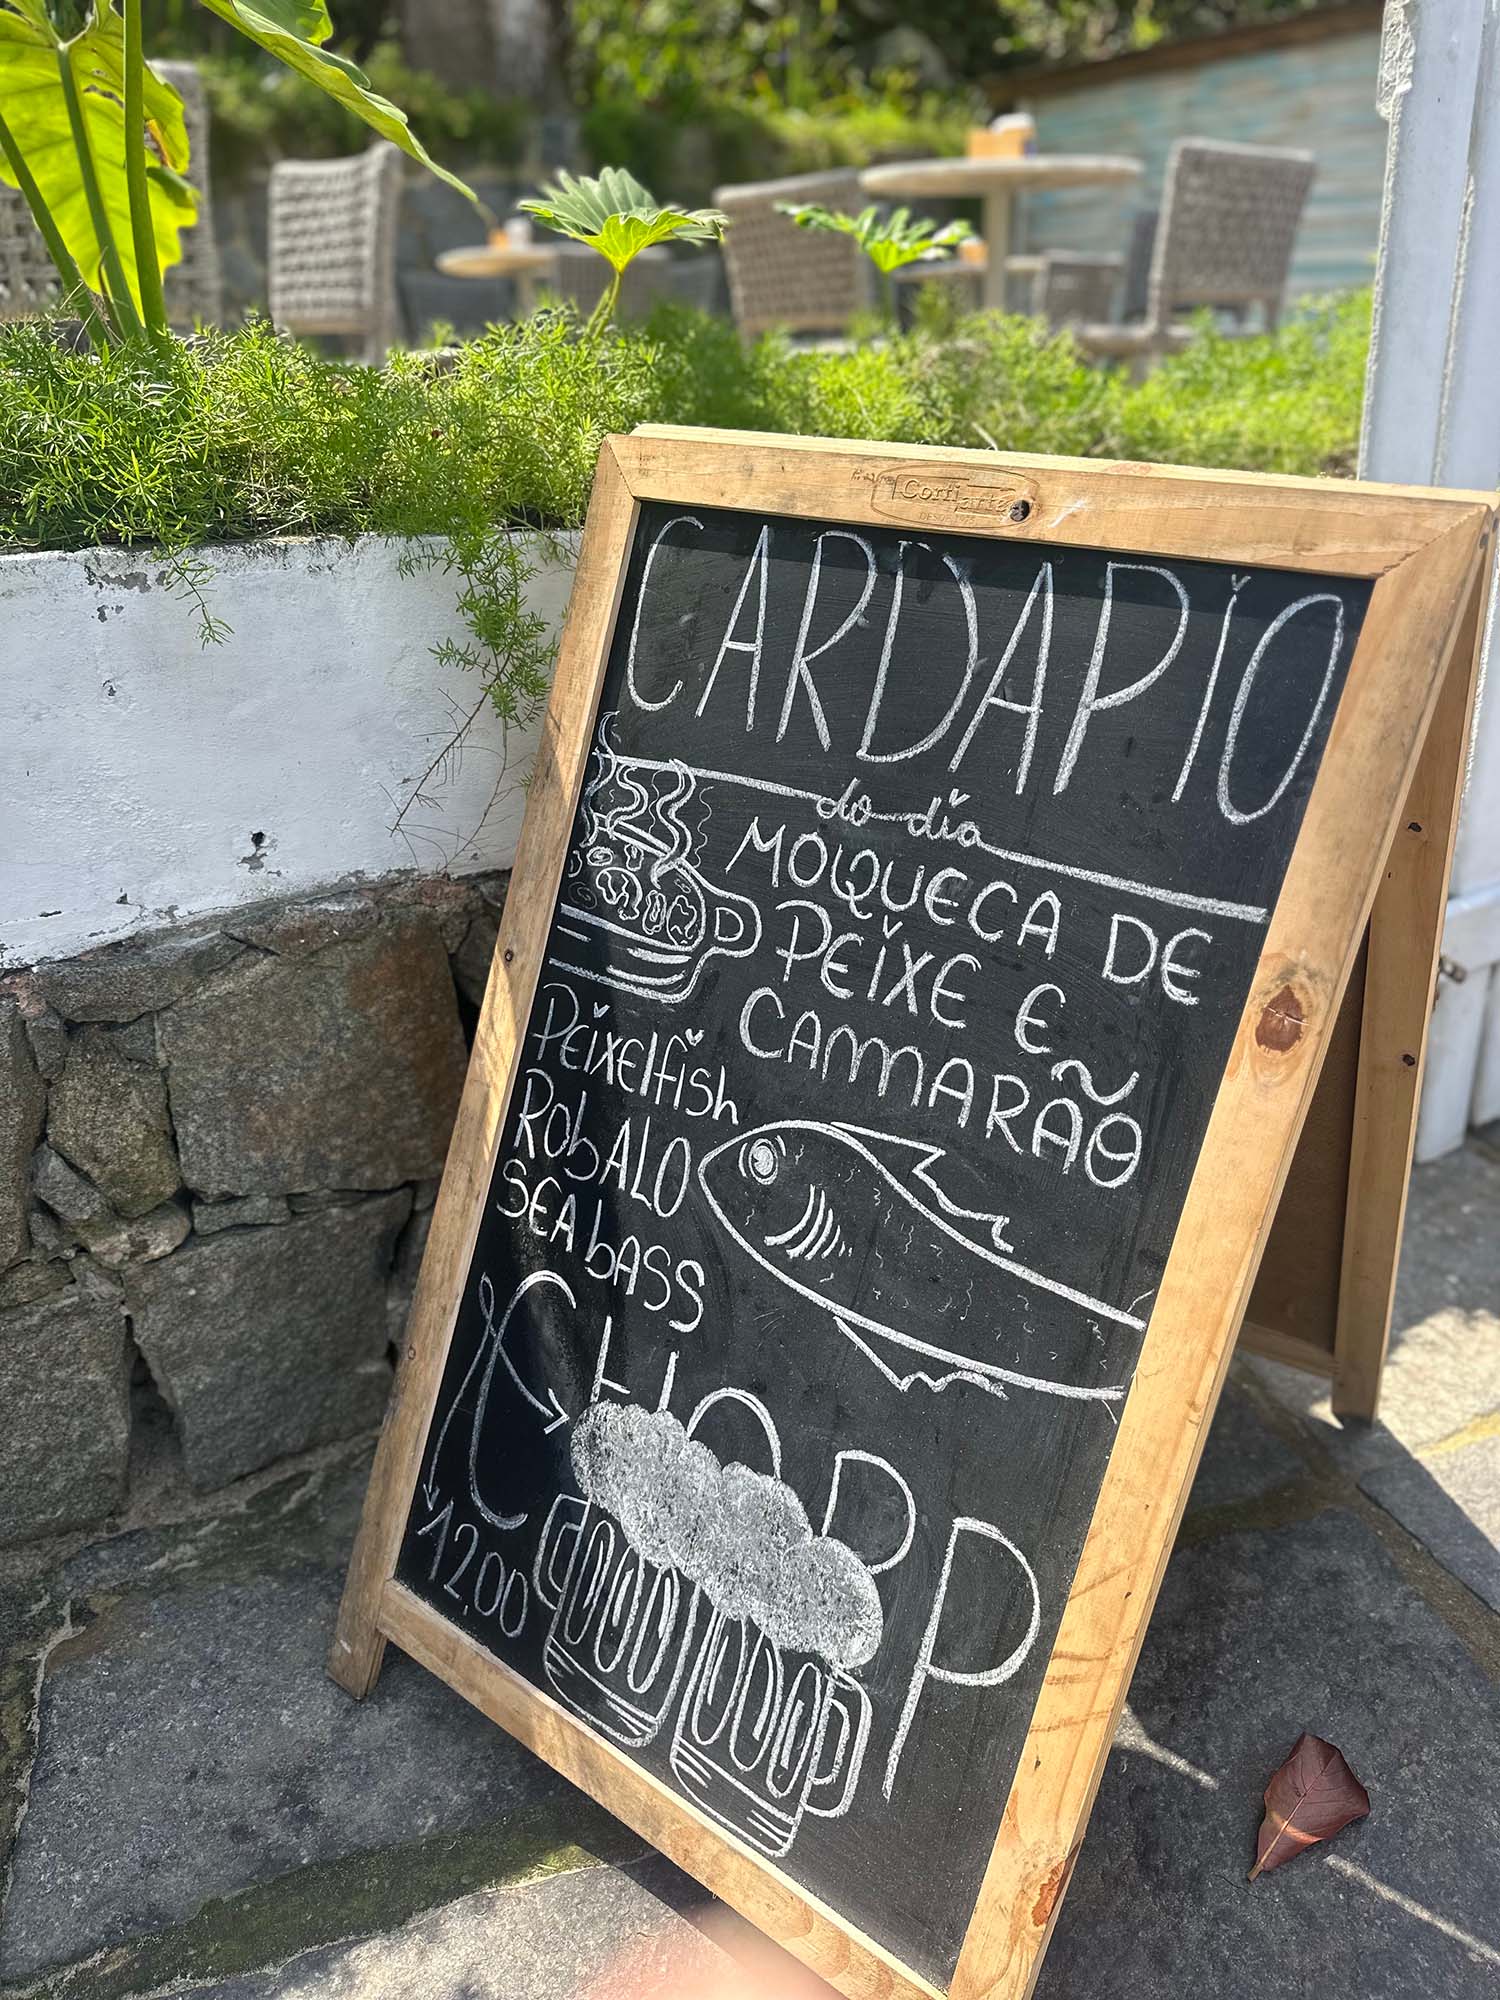 Corfiarte
CARDAPIO
do dia
MOQUECA DE
PEIXE E
CAMARÃO
PEIXE/fish
RobALO
SEA bASS
CHOPP
12,00